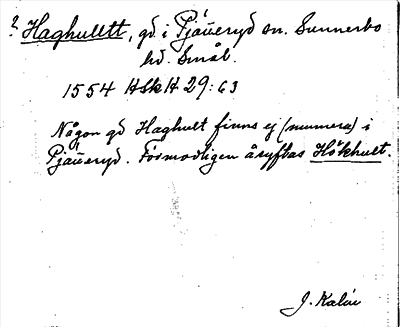 ? Haghultt, gd i Pjätteryd sn. Sunnerbo
hd. Smål.
1554 HSkH 29:63
Någon gd Haghult finns ej (numera) i
Pjätteryd. Förmodligen åsyftas Hökhult.
J. Kalén